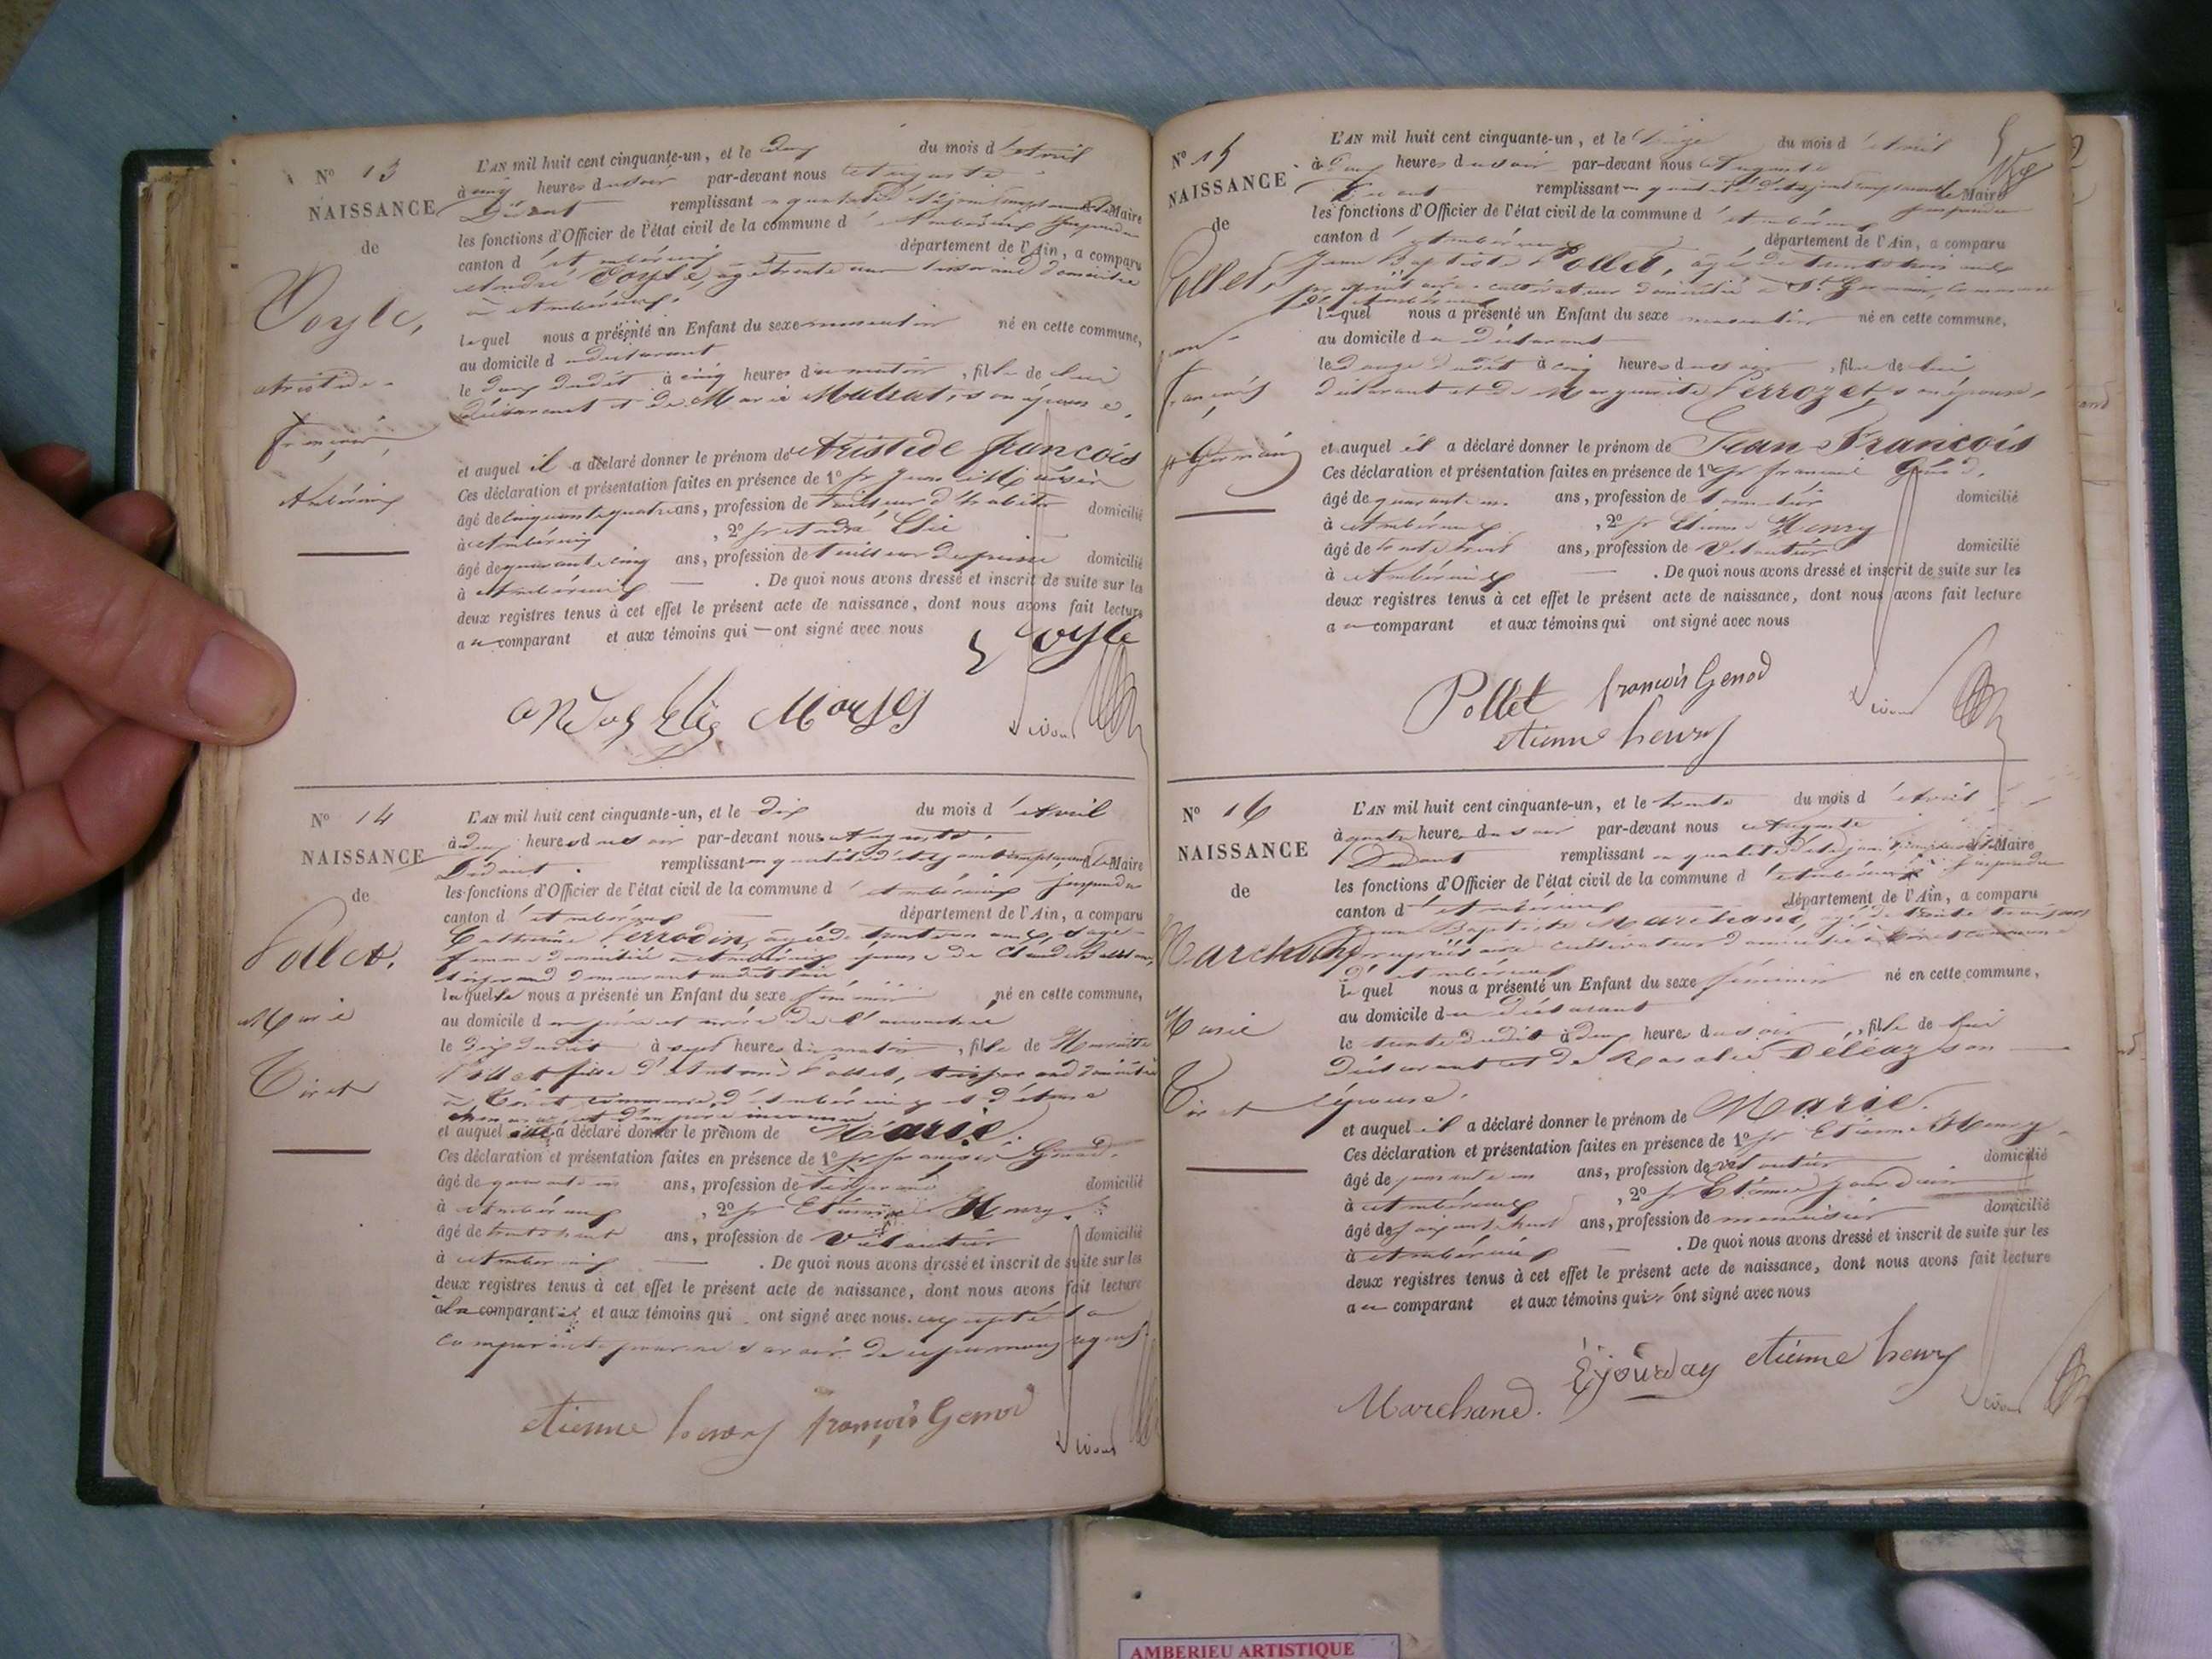 N° 13
NAISSANCE
de
Voyle,
Aristide
françois,
Ambérieux
L'AN mil huit cent cinquante-un, et le du mois d'Avril
à cinq heures du soir par-devant nous Auguste
remplissant en qualité d'adjoint le Maire
les fonctions d'Officier de l'état civil de la commune d'Ambérieux suspendu
canton d'Ambérieux département de l'Ain, a comparu
André Voyle, agé trente ans tisserand domicilié
à Ambérieux,
lequel nous a présenté un Enfant du sexe masculin né en cette commune,
au domicile du déclarant
le dudit à cinq heures du matin, fils de lui
déclarant et de Marie son épouse,
et auquel il a déclaré donner le prénom de Aristide françois
Ces déclaration et présentation faites en présence de 1° Sr
âgé de cinquante quatre ans, profession de tailleur d'habits domicilié
à Ambérieux, 2° Sr André Elie
âgé de quarante cinq ans, profession de tailleur de pierre domicilié
à Ambérieux — . De quoi nous avons dressé et inscrit de suite sur les
deux registres tenus à cet effet le présent acte de naissance, dont nous avons fait lecture
au comparant et aux témoins qui — ont signé avec nous
Voyle
N° 14
NAISSANCE
de
Pollet.
Marie
Tiret
L'AN mil huit cent cinquante-un, et le Dix du mois d'Avril
à heures du soir par-devant nous Auguste
remplissant en qualité d'adjoint le Maire
les fonctions d'Officier de l'état civil de la commune d'Ambérieux suspendu
canton d'Ambérieux département de l'Ain, a comparu
Catherine Perrodin, agée de ans, sage
femme domiciliée à Ambérieux épouse de Claude
tisserand demeurant audit lieu
laquelle nous a présenté un Enfant du sexe féminin né en cette commune,
au domicile
le dix dudit à sept heures du matin, fille de
Pollet fille d'Antoine Pollet, tisserand domicilié
à Tiret commune d'Ambérieux
et d'un père inconnu
et auquel elle a déclaré donner le prénom de Marie.
Ces déclaration et présentation faites en présence de 1° Sr françois Genod,
âgé de quarante un ans, profession de domicilié
à Ambérieux, 2° Sr Etienne Henry
âgé de trente huit ans, profession de domicilié
à Ambérieux — . De quoi nous avons dressé et inscrit de suite sur les
deux registres tenus à cet effet le présent acte de naissance, dont nous avons fait lecture
à la comparante et aux témoins qui ont signé avec nous. excepté la
comparante pour ne savoir de ce par nous requise
etienne henry françois Genod
N° 15
NAISSANCE
de
Pollet,
jean
françois
St Germain
L'AN mil huit cent cinquante-un, et le du mois d'Avril
à heures du soir par-devant nous Auguste
remplissant en qualité d'adjoint le Maire
les fonctions d'Officier de l'état civil de la commune d'Ambérieux suspendu
canton d'Ambérieux département de l'Ain, a comparu
Jean Baptiste Pollet, agé de trente trois ans
propriétaire cultivateur domicilié à St Germain, commune
d'Ambérieux
lequel nous a présenté un Enfant du sexe masculin né en cette commune,
au domicile du Déclarant
le dudit à cinq heures du soir, fils de lui
déclarant et de Marguerite Perrozet, son épouse,
et auquel il a déclaré donner le prénom de Jean François
Ces déclaration et présentation faites en présence de 1° Sr françois Genod,
âgé de quarante un ans, profession de domicilié
à Ambérieux, 2° Sr Etienne Henry
âgé de trente huit ans, profession de domicilié
à Ambérieux — . De quoi nous avons dressé et inscrit de suite sur les
deux registres tenus à cet effet le présent acte de naissance, dont nous avons fait lecture
au comparant et aux témoins qui ont signé avec nous
Pollet françois Genod
etienne henry
N° 16
NAISSANCE
de
Marchand
Marie
Tiret
L'AN mil huit cent cinquante-un, et le trente du mois d'Avril
à quatre heures du soir par-devant nous Auguste
remplissant en qualité d'adjoint le Maire
les fonctions d'Officier de l'état civil de la commune d'Ambérieux suspendu
canton d'Ambérieux département de l'Ain, a comparu
Jean Baptiste Marchand, agé de trente trois ans
propriétaire cultivateur domicilié à Tiret commune
d'Ambérieux
lequel nous a présenté un Enfant du sexe féminin né en cette commune,
au domicile du Déclarant
le trente dudit à heures du soir, fille de lui
Déclarant et de Rosalie Déléaz son
épouse.
et auquel il a déclaré donner le prénom de Marie.
Ces déclaration et présentation faites en présence de 1° Sr Etienne Henry
âgé de ans, profession de domicilié
à Ambérieux, 2° Sr Etienne
âgé de soixante huit ans, profession de menuisier domicilié
à Ambérieux — . De quoi nous avons dressé et inscrit de suite sur les
deux registres tenus à cet effet le présent acte de naissance, dont nous avons fait lecture
au comparant et aux témoins qui ont signé avec nous
etienne henry
Marchand.
AMBERIEU ARTISTIQUE